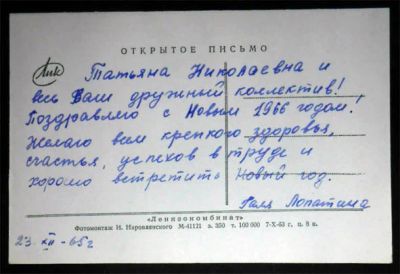 ОТКРЫТОЕ ПИСЬМО
Лик
Татьяна Николаевна и
весь Ваш дружный коллектив!
Поздравляю с Новым 1966 годом!
Желаю вам крепкого здоровья,
счастья, успехов в труде и
хорошо встретить Новый год.
Галя Лопатина
«Лензокомбинат»
Фотомонтаж И. Наровлянского М-41121 з. 350 т. 100 000 7-X-63 г. ц. 8 к.
23. XII - 65 г